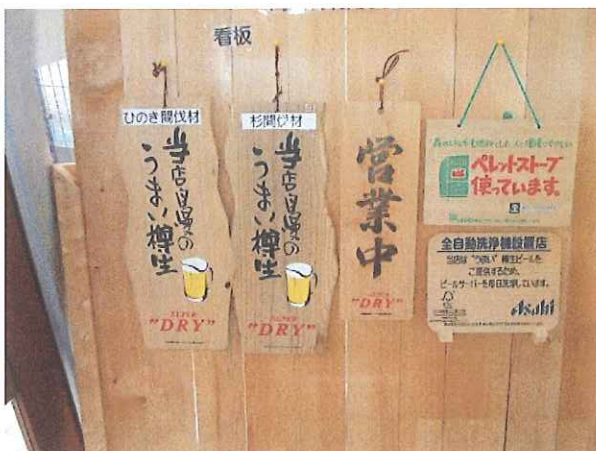 看板
ひのき間伐材
当店自慢の
うまい樽生
SUPER
"DRY"
杉間伐材
当店自慢の
うまい樽生
SUPER
"DRY"
営業中
SUPER
"DRY"
ペレットストーブ
使っています。
全自動洗浄機設置店
当店は"うまい"樽生ビールを
ご提供するため、
ビールサーバーを毎日洗浄しています。
Asahi